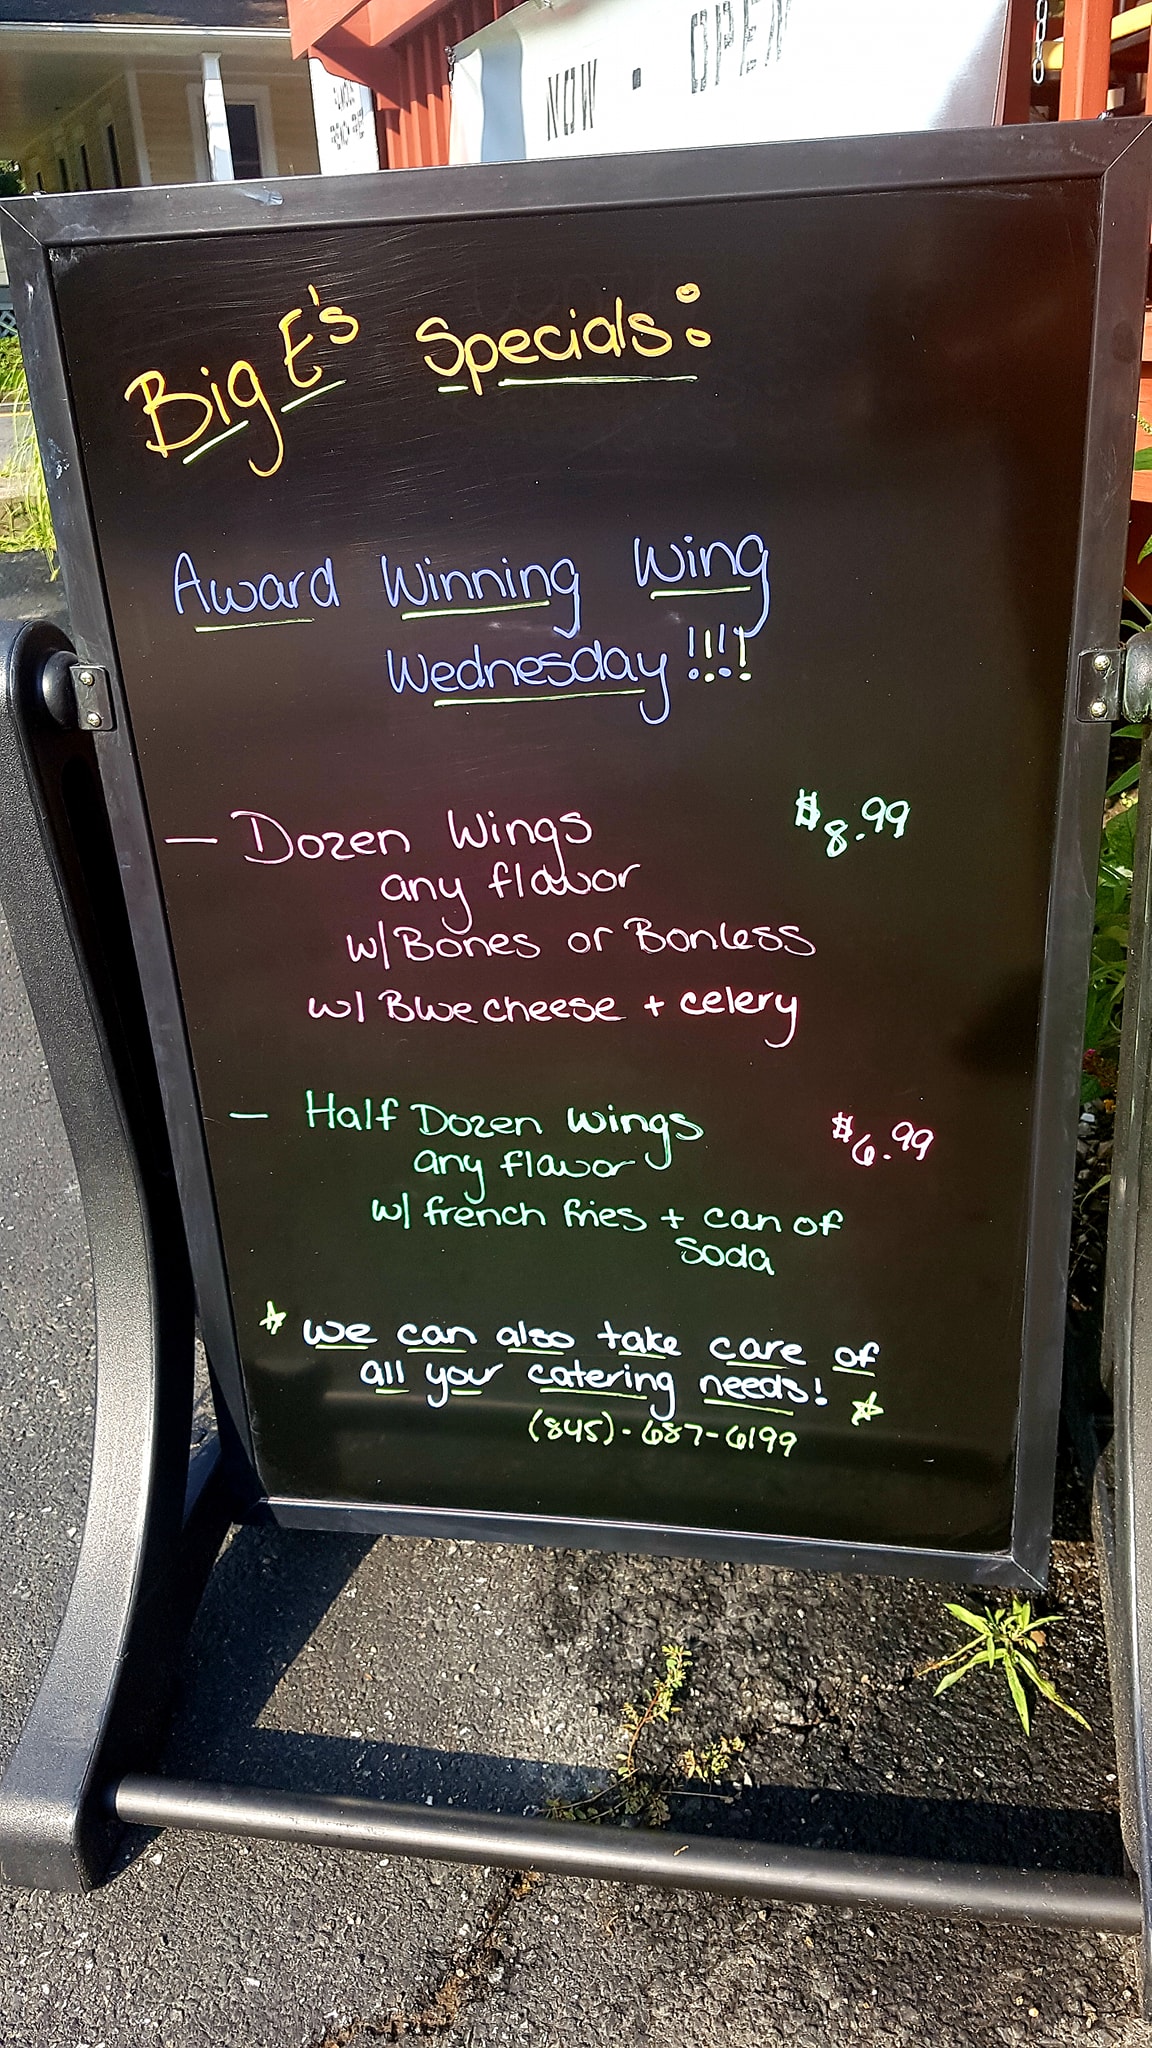 NOW · OPEN
Big E's Specials:
Award Winning Wing
Wednesday!!!!
— Dozen Wings $8.99
any flavor
w/Bones or Bonless
w/ Bluecheese + celery
— Half Dozen Wings $6.99
any flavor
w/ french fries + can of
soda
☆ We can also take care of
all your catering needs! ☆
(845)-687-6199